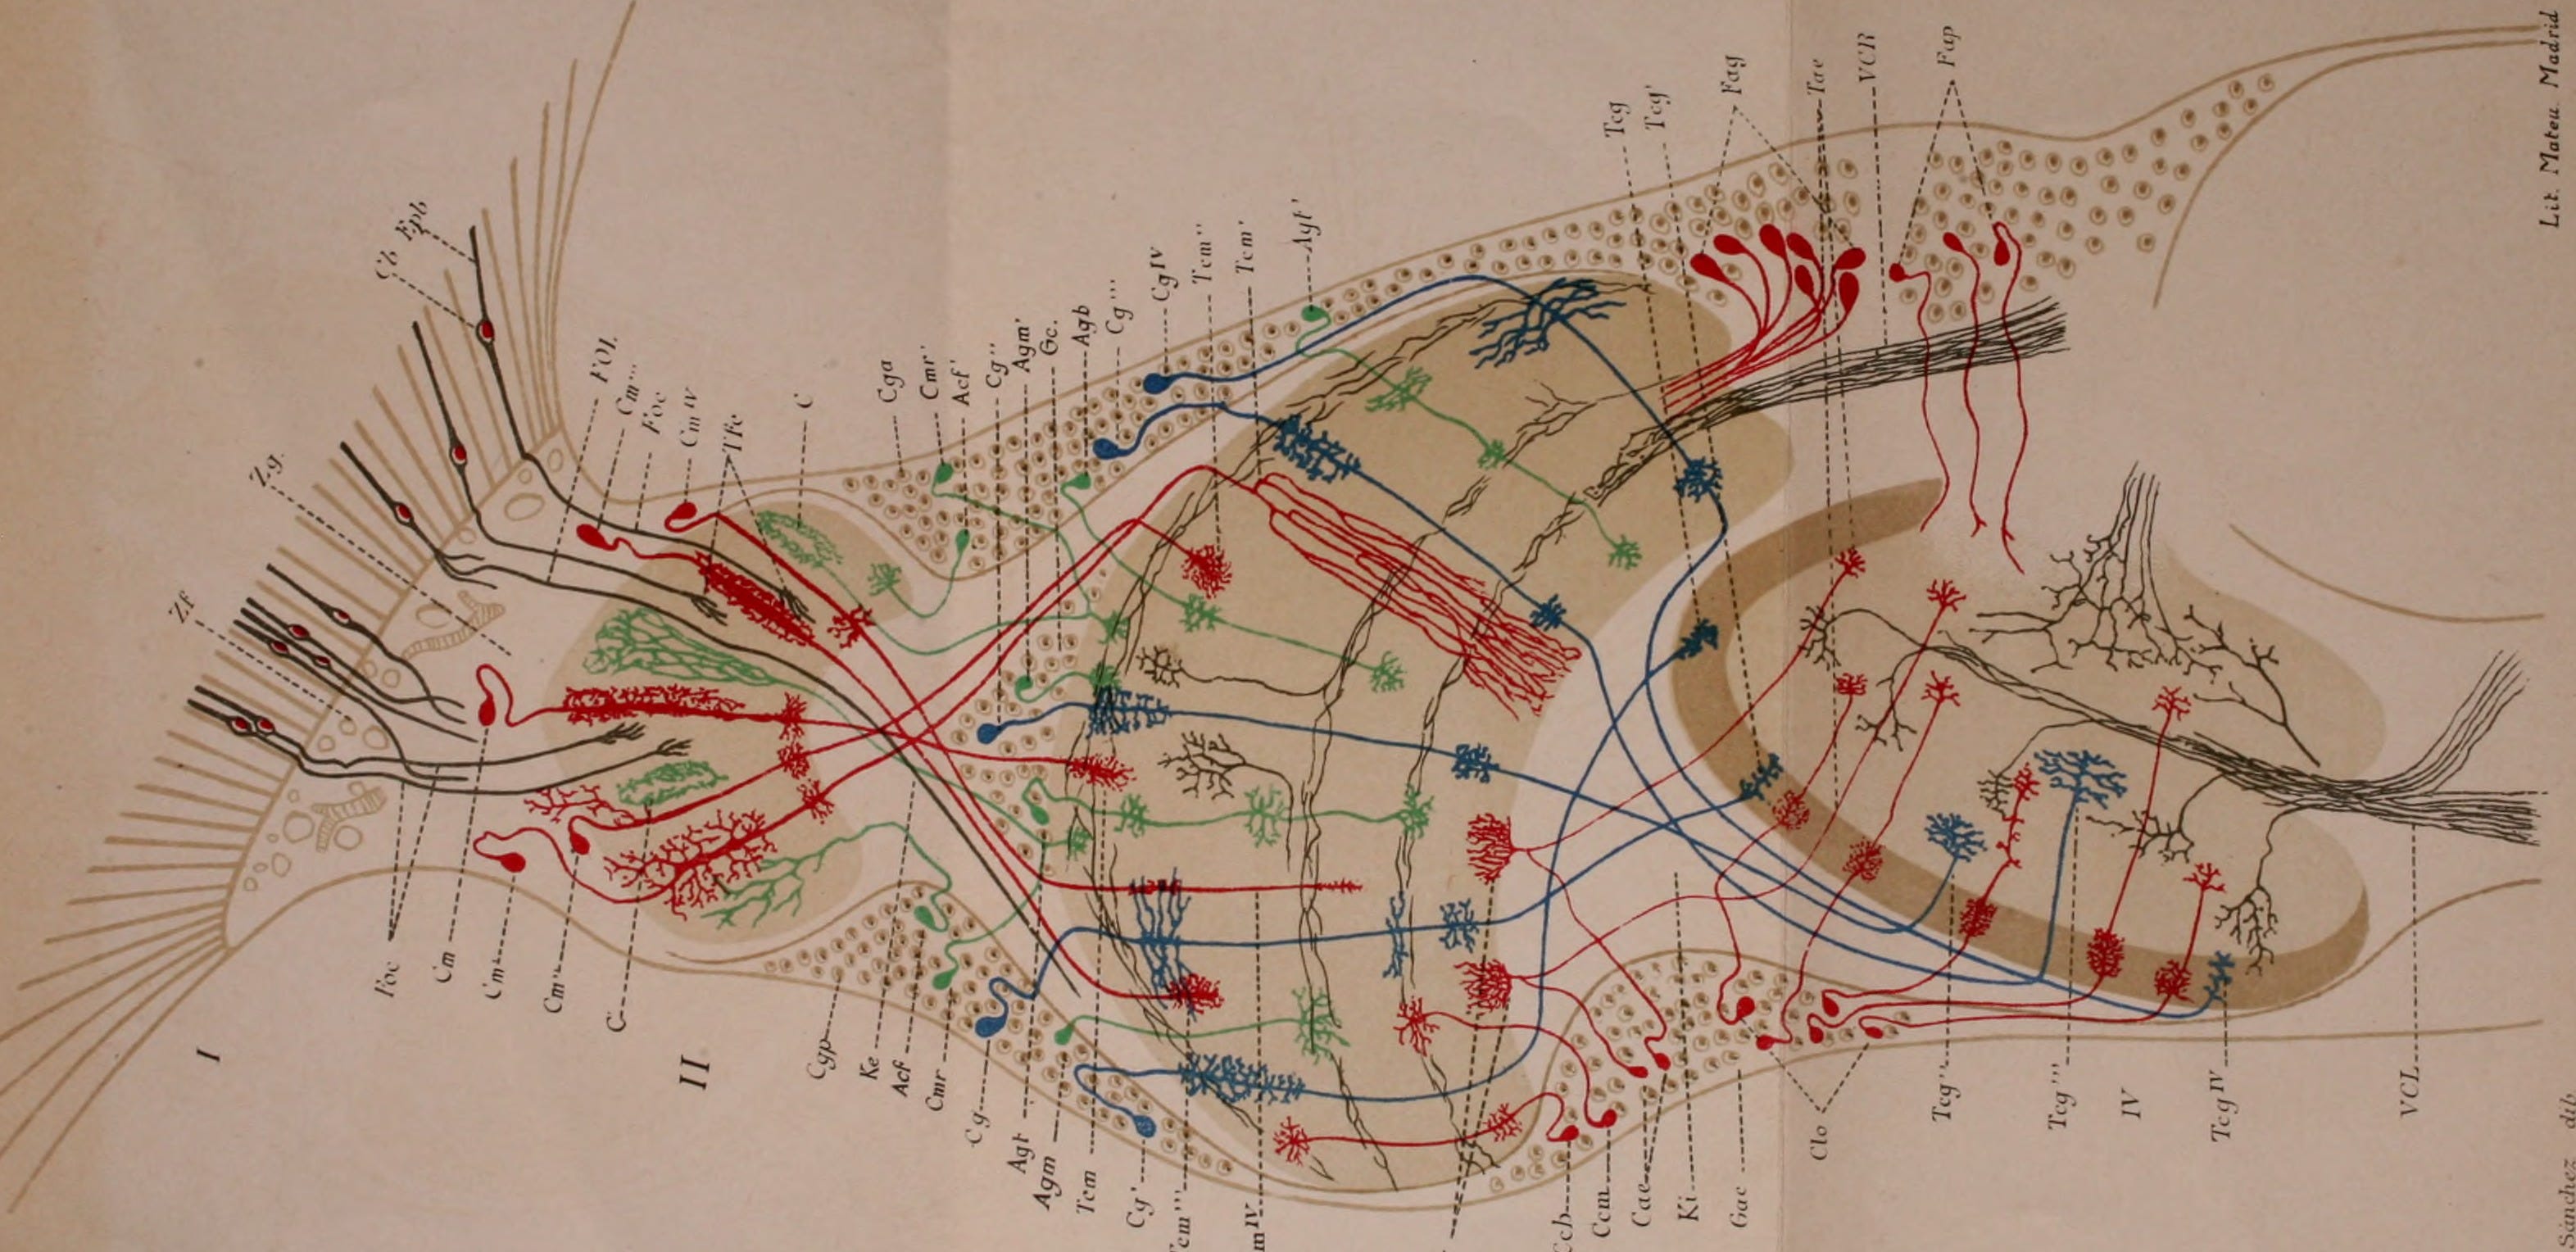 Zf
Zg.
Cb
Epb
FOI.
Cm'''
Foc
Cm IV
TFc
C
Cga
Cmr'
Acf'
Cg''
Agm'
Gc.
Agb
Cg'''
Cg IV
Tcm''
Tcm'
Agt'
Tcg
Tcg'
Fag
Tae
VCR
Fap
Lit. Mateu. Madrid
I
Foc
Cm
Cm'
Cm''
C
II
Cgp
Ke
Acf
Cmr
Cg
Agt
Agm
Tcm
Cg'
cm''
m IV
Ccb
Ccm
Cae
Ki
Gac
Clo
Tcg''
Tcg'''
IV
Tcg IV
VCL
Sánchez dib.